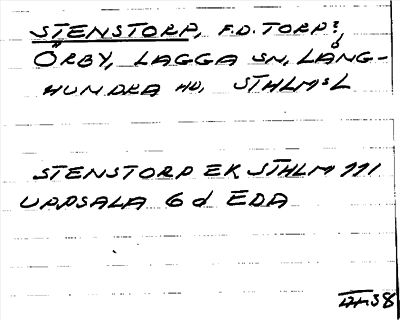 STENSTORP, F.D. TORP?,
ÖRBY, LAGGA SN, LÅNG-
HUNDRA HD, STHLMS L
STENSTORP EK STHLM 111
UPPSALA 6 d EDA
38